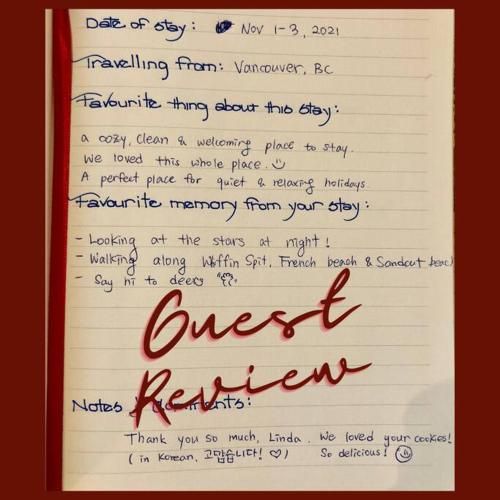 Date of stay: Nov 1-3, 2021
Travelling from: Vancouver, BC
Favourite thing about this stay:
a cozy, clean & welcoming place to stay.
We loved this whole place.
A perfect place for quiet & relaxing holidays.
Favourite memory from your stay:
- Looking at the stars at night!
- Walking along Whiffin Spit, French beach & Sandcut beach
- Say hi to deers
Guest
Review
Notes & Comments:
Thank you so much, Linda. We loved your cookies!
(in Korean, 고맙습니다! ♡) So delicious!